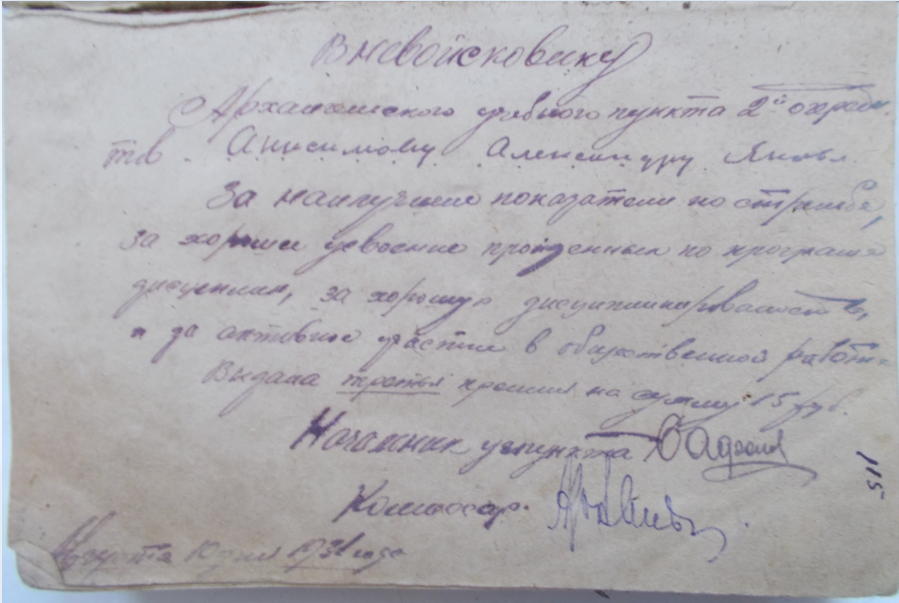 Вневойсковику
Архангельского учебного пункта 2й
Анисимову Александру Яковл.
За наилучшие показатели по стрельбе,
за хорошее усвоение пройденных по програме
дисциплин, за хорошую дисциплинированость,
и за активное участие в общественной работе
Выдана третья премия на сумму 15 руб.
Начальник учпункта
Комиссар.
Августа 10 дня 1931 года
115